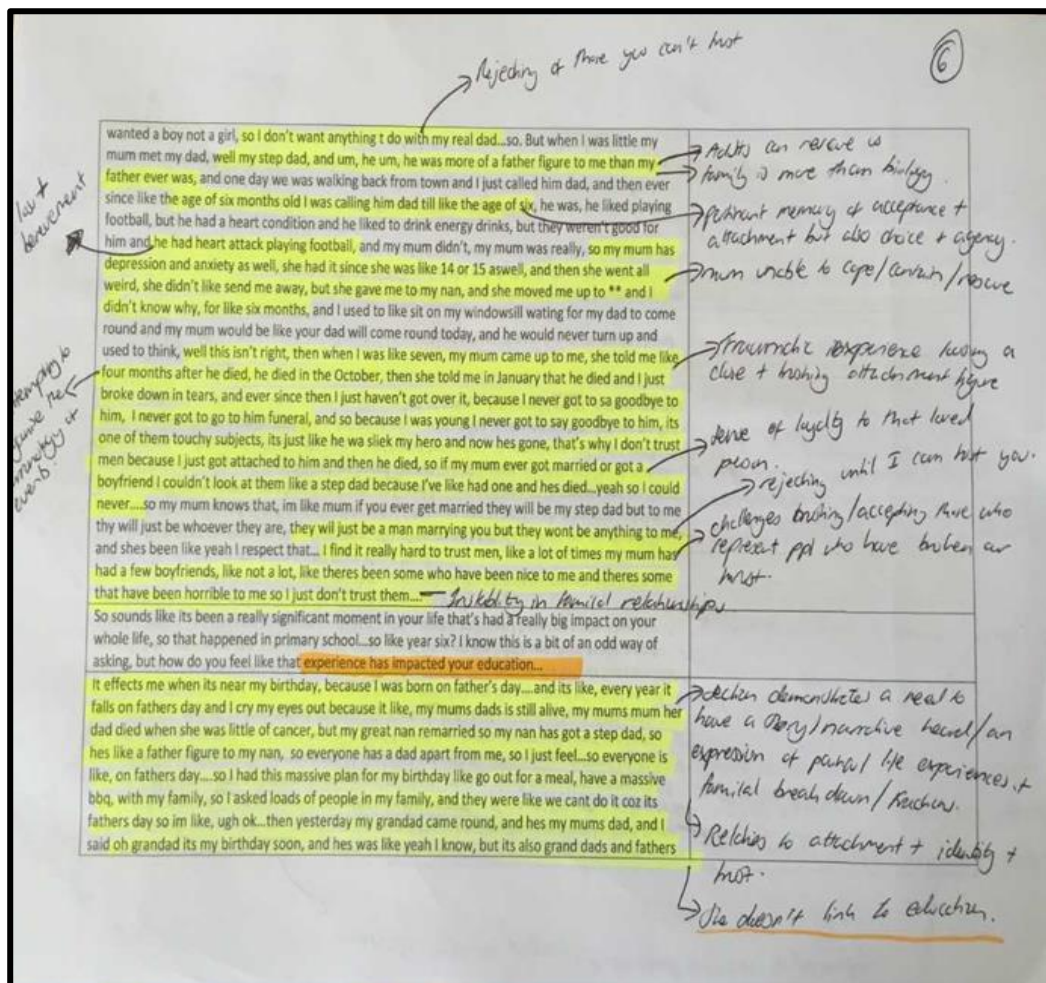 Rejecting of those you can't trust
6
wanted a boy not a girl, so I don't want anything t do with my real dad...so. But when I was little my
mum met my dad, well my step dad, and um, he um, he was more of a father figure to me than my
father ever was, and one day we was walking back from town and I just called him dad, and then ever
since like the age of six months old I was calling him dad till like the age of six, he was, he liked playing
football, but he had a heart condition and he liked to drink energy drinks, but they weren't good for
him and he had heart attack playing football, and my mum didn't, my mum was really, so my mum has
depression and anxiety as well, she had it since she was like 14 or 15 aswell, and then she went all
weird, she didn't like send me away, but she gave me to my nan, and she moved me up to ** and I
didn't know why, for like six months, and I used to like sit on my windowsill wating for my dad to come
round and my mum would be like your dad will come round today, and he would never turn up and
used to think, well this isn't right, then when I was like seven, my mum came up to me, she told me like
four months after he died, he died in the October, then she told me in January that he died and I just
broke down in tears, and ever since then I just haven't got over it, because I never got to sa goodbye to
him, I never got to go to him funeral, and so because I was young I never got to say goodbye to him, its
one of them touchy subjects, its just like he wa sliek my hero and now hes gone, that's why I don't trust
men because I just got attached to him and then he died, so if my mum ever got married or got a
boyfriend I couldn't look at them like a step dad because I've like had one and hes died...yeah so I could
never....so my mum knows that, im like mum if you ever get married they will be my step dad but to me
thy will just be whoever they are, they wil just be a man marrying you but they wont be anything to me,
and shes been like yeah I respect that... I find it really hard to trust men, like a lot of times my mum has
had a few boyfriends, like not a lot, like theres been some who have been nice to me and theres some
that have been horrible to me so I just don't trust them....
Instability in familial relationships
So sounds like its been a really significant moment in your life that's had a really big impact on your
whole life, so that happened in primary school...so like year six? I know this is a bit of an odd way of
asking, but how do you feel like that experience has impacted your education...
It effects me when its near my birthday, because I was born on father's day....and its like, every year it
falls on fathers day and I cry my eyes out because it like, my mums dads is still alive, my mums mum her
dad died when she was little of cancer, but my great nan remarried so my nan has got a step dad, so
hes like a father figure to my nan, so everyone has a dad apart from me, so I just feel...so everyone is
like, on fathers day....so I had this massive plan for my birthday like go out for a meal, have a massive
bbq, with my family, so I asked loads of people in my family, and they were like we cant do it coz its
fathers day so im like, ugh ok...then yesterday my grandad came round, and hes my mums dad, and I
said oh grandad its my birthday soon, and hes was like yeah I know, but its also grand dads and fathers
loss +
bereavement
Attempting to
the
chronology of
events.
Adults can rescue us
family is more than biology.
poignant memory of acceptance +
attachment but also choice + agency.
mum unable to cope/contain/rescue
Traumatic experience losing a
close + trusting attachment figure
sense of loyalty to that loved
person.
rejecting until I can trust you.
challenges trusting/accepting those who
represent ppl who have broken our
trust.
section demonstrates a need to
have a story/narrative heard/an
expression of painful life experiences +
familial breakdown/fractions.
Relates to attachment + identity +
trust.
She doesn't link to education.